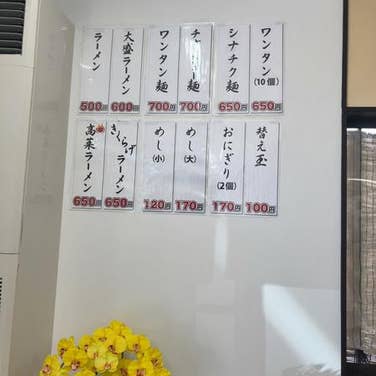 ラーメン
500円
大盛ラーメン
600円
ワンタン麺
700円
麺
700円
シナチク麺
650円
ワンタン
(10個)
650円
高菜ラーメン
650円
きくらげラーメン
650円
めし(小)
120円
めし(大)
170円
おにぎり(2個)
170円
替え玉
100円